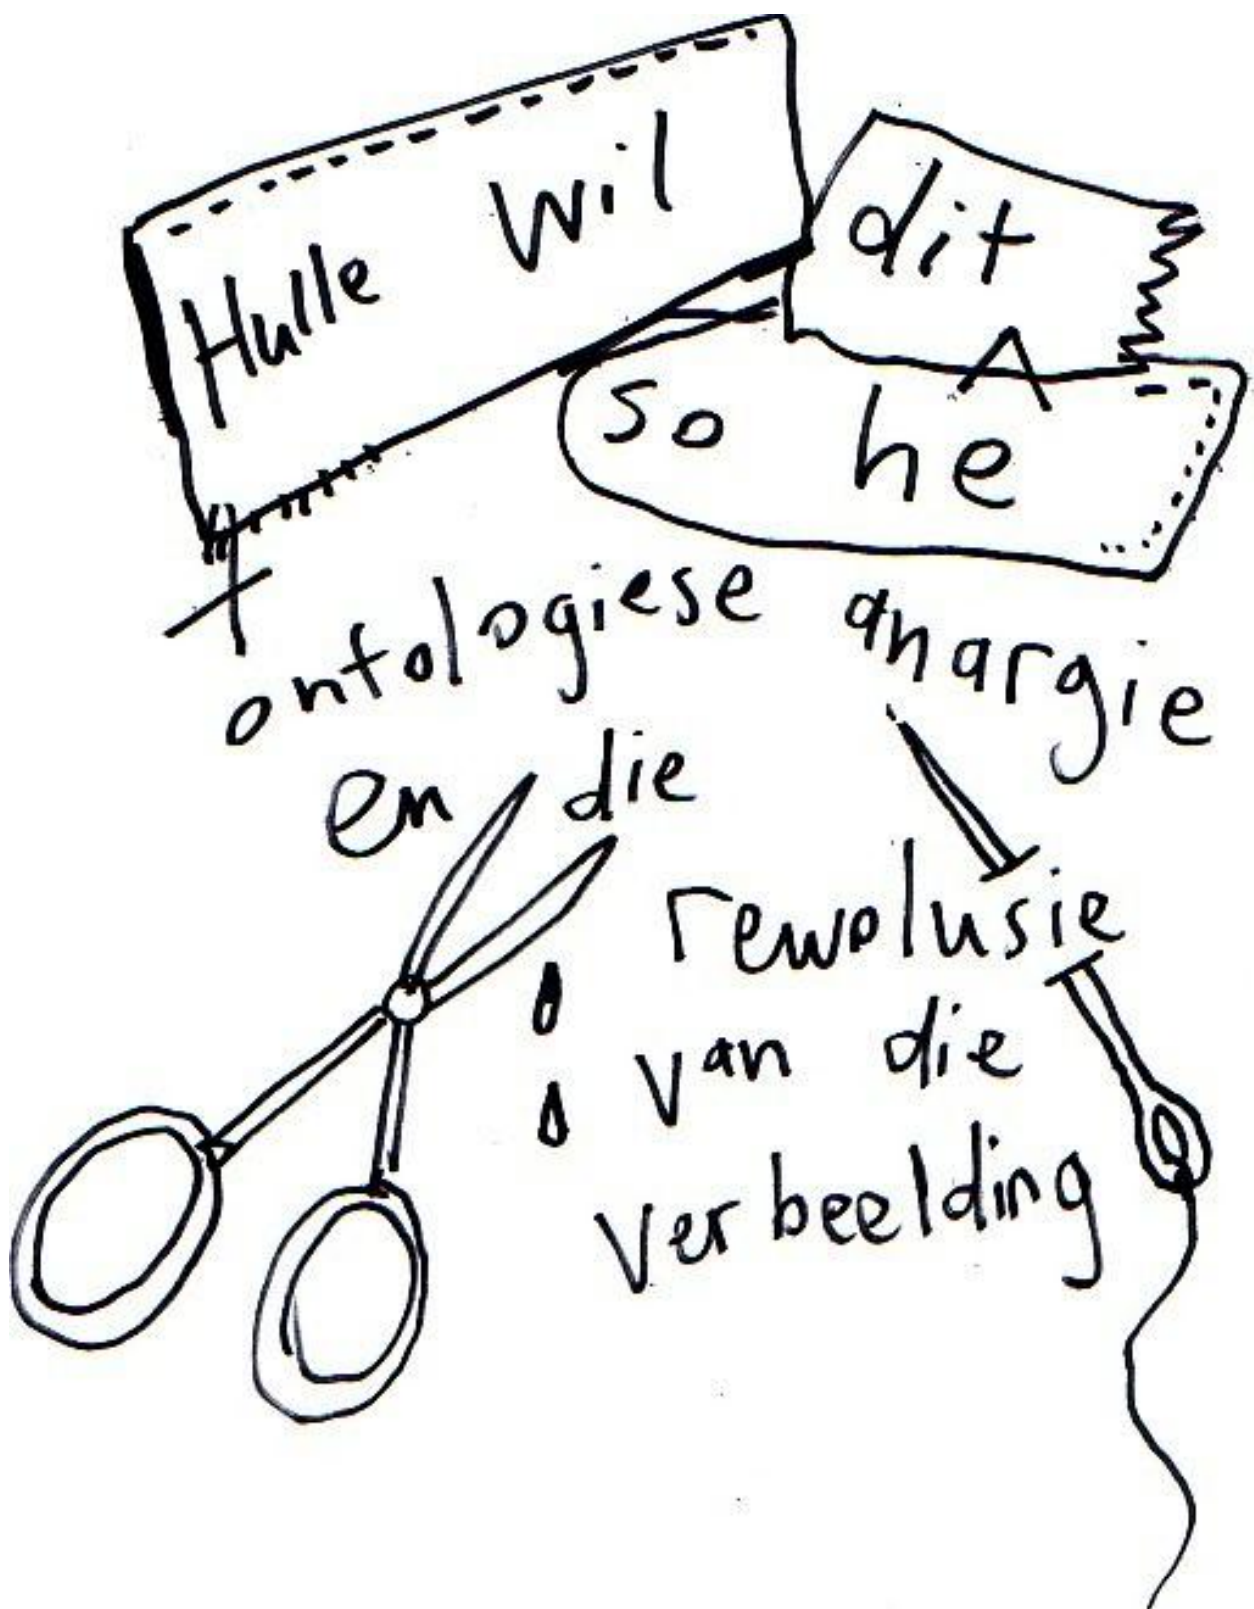 Hulle wil dit
so he
ontologiese anargie
en die
rewolusie
van die
verbeelding